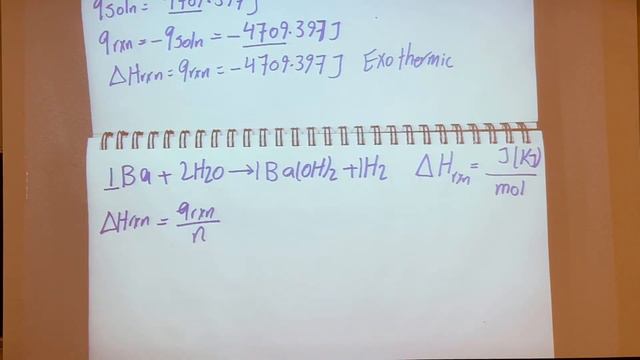 qsoln = 4709.397J
qrxn = -qsoln = -4709.397J
ΔHrxn = qrxn = -4709.397J Exothermic
1Ba + 2H2O → 1Ba(OH)2 + 1H2 ΔHrxn = J(KJ)/mol
ΔHrxn = qrxn/n